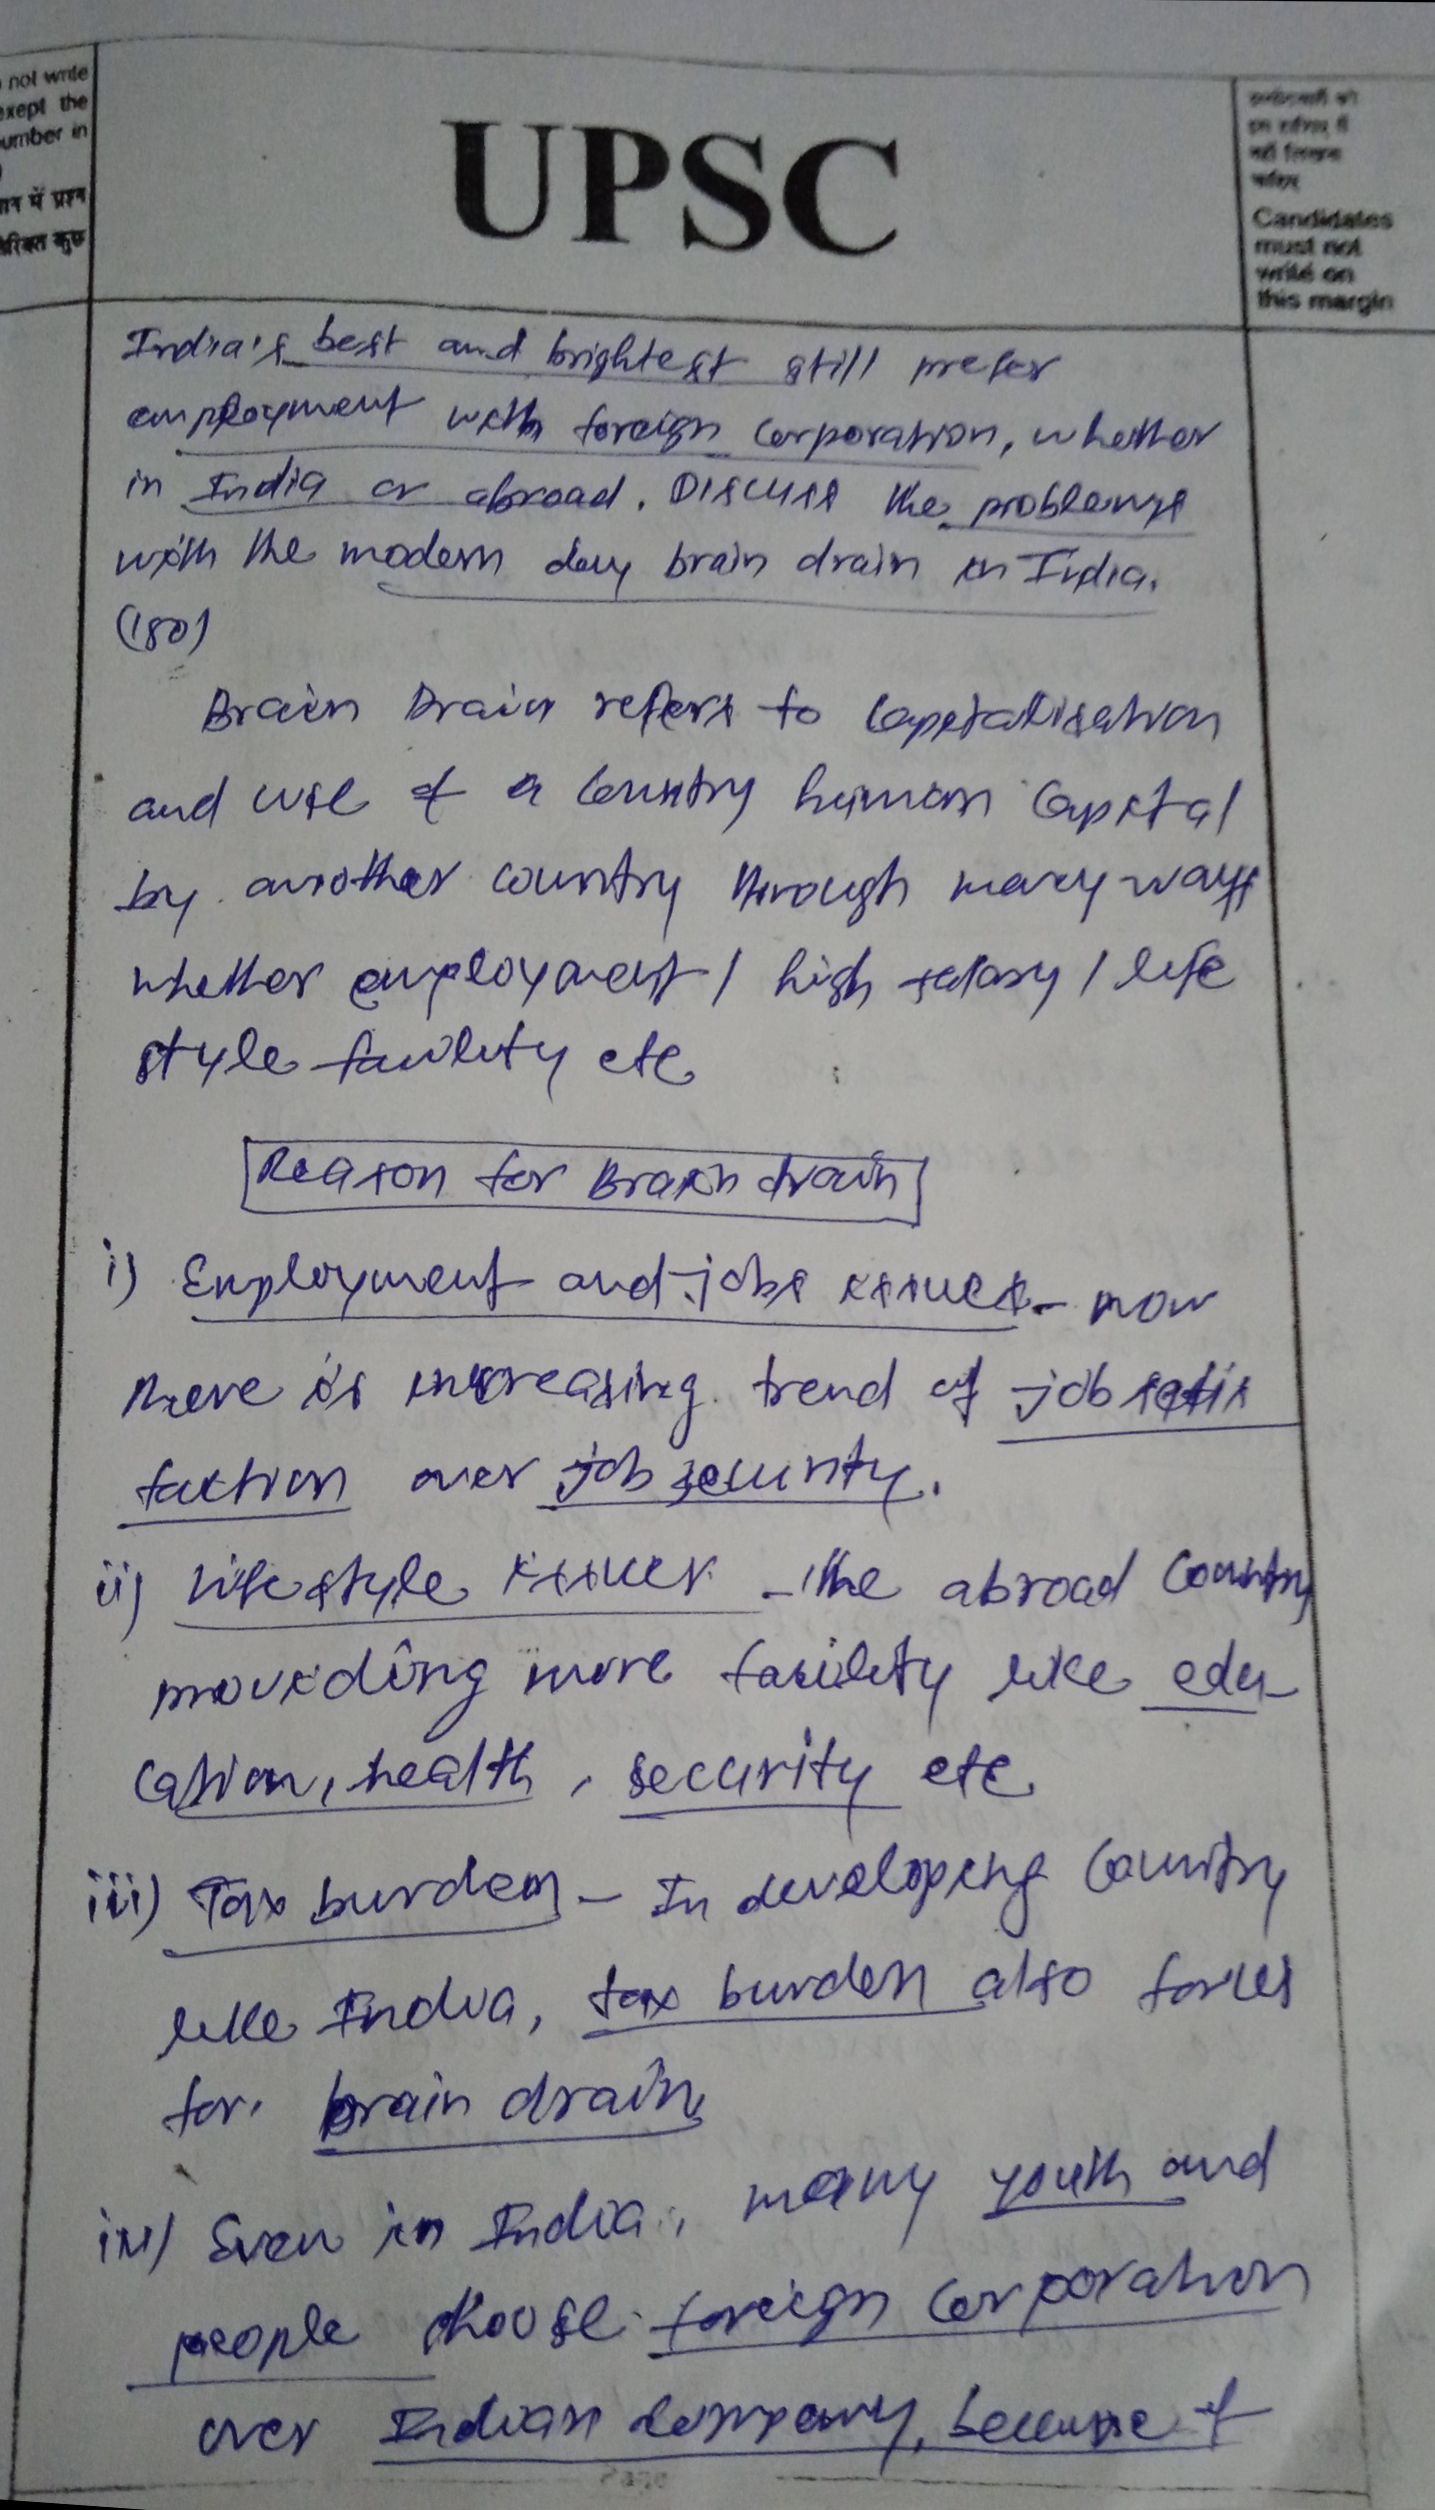 not write
except the
number in
में प्रश्न
कुछ
UPSC
Candidates
must not
write on
this margin
India's best and brightest still prefer
employment with foreign corporation, whether
in India or abroad. Discuss the problems
with the modern day brain drain in India.
(150)
Brain Drain refers to Capitalisation
and use of a Country human Capital
by another country through many ways
whether employment / high salary / life
style facility etc
Reason for Brain drain
i) Employment and jobs issues - now
there is increasing trend of job satis
faction over job security.
ii) Life style issues - the abroad Country
providing more facility like edu-
cation, health, security etc
iii) Tax burden - In developing Country
like India, tax burden also forces
for brain drain
iv) Even in India, many youth and
people choose foreign Corporation
over Indian company, because of
Page